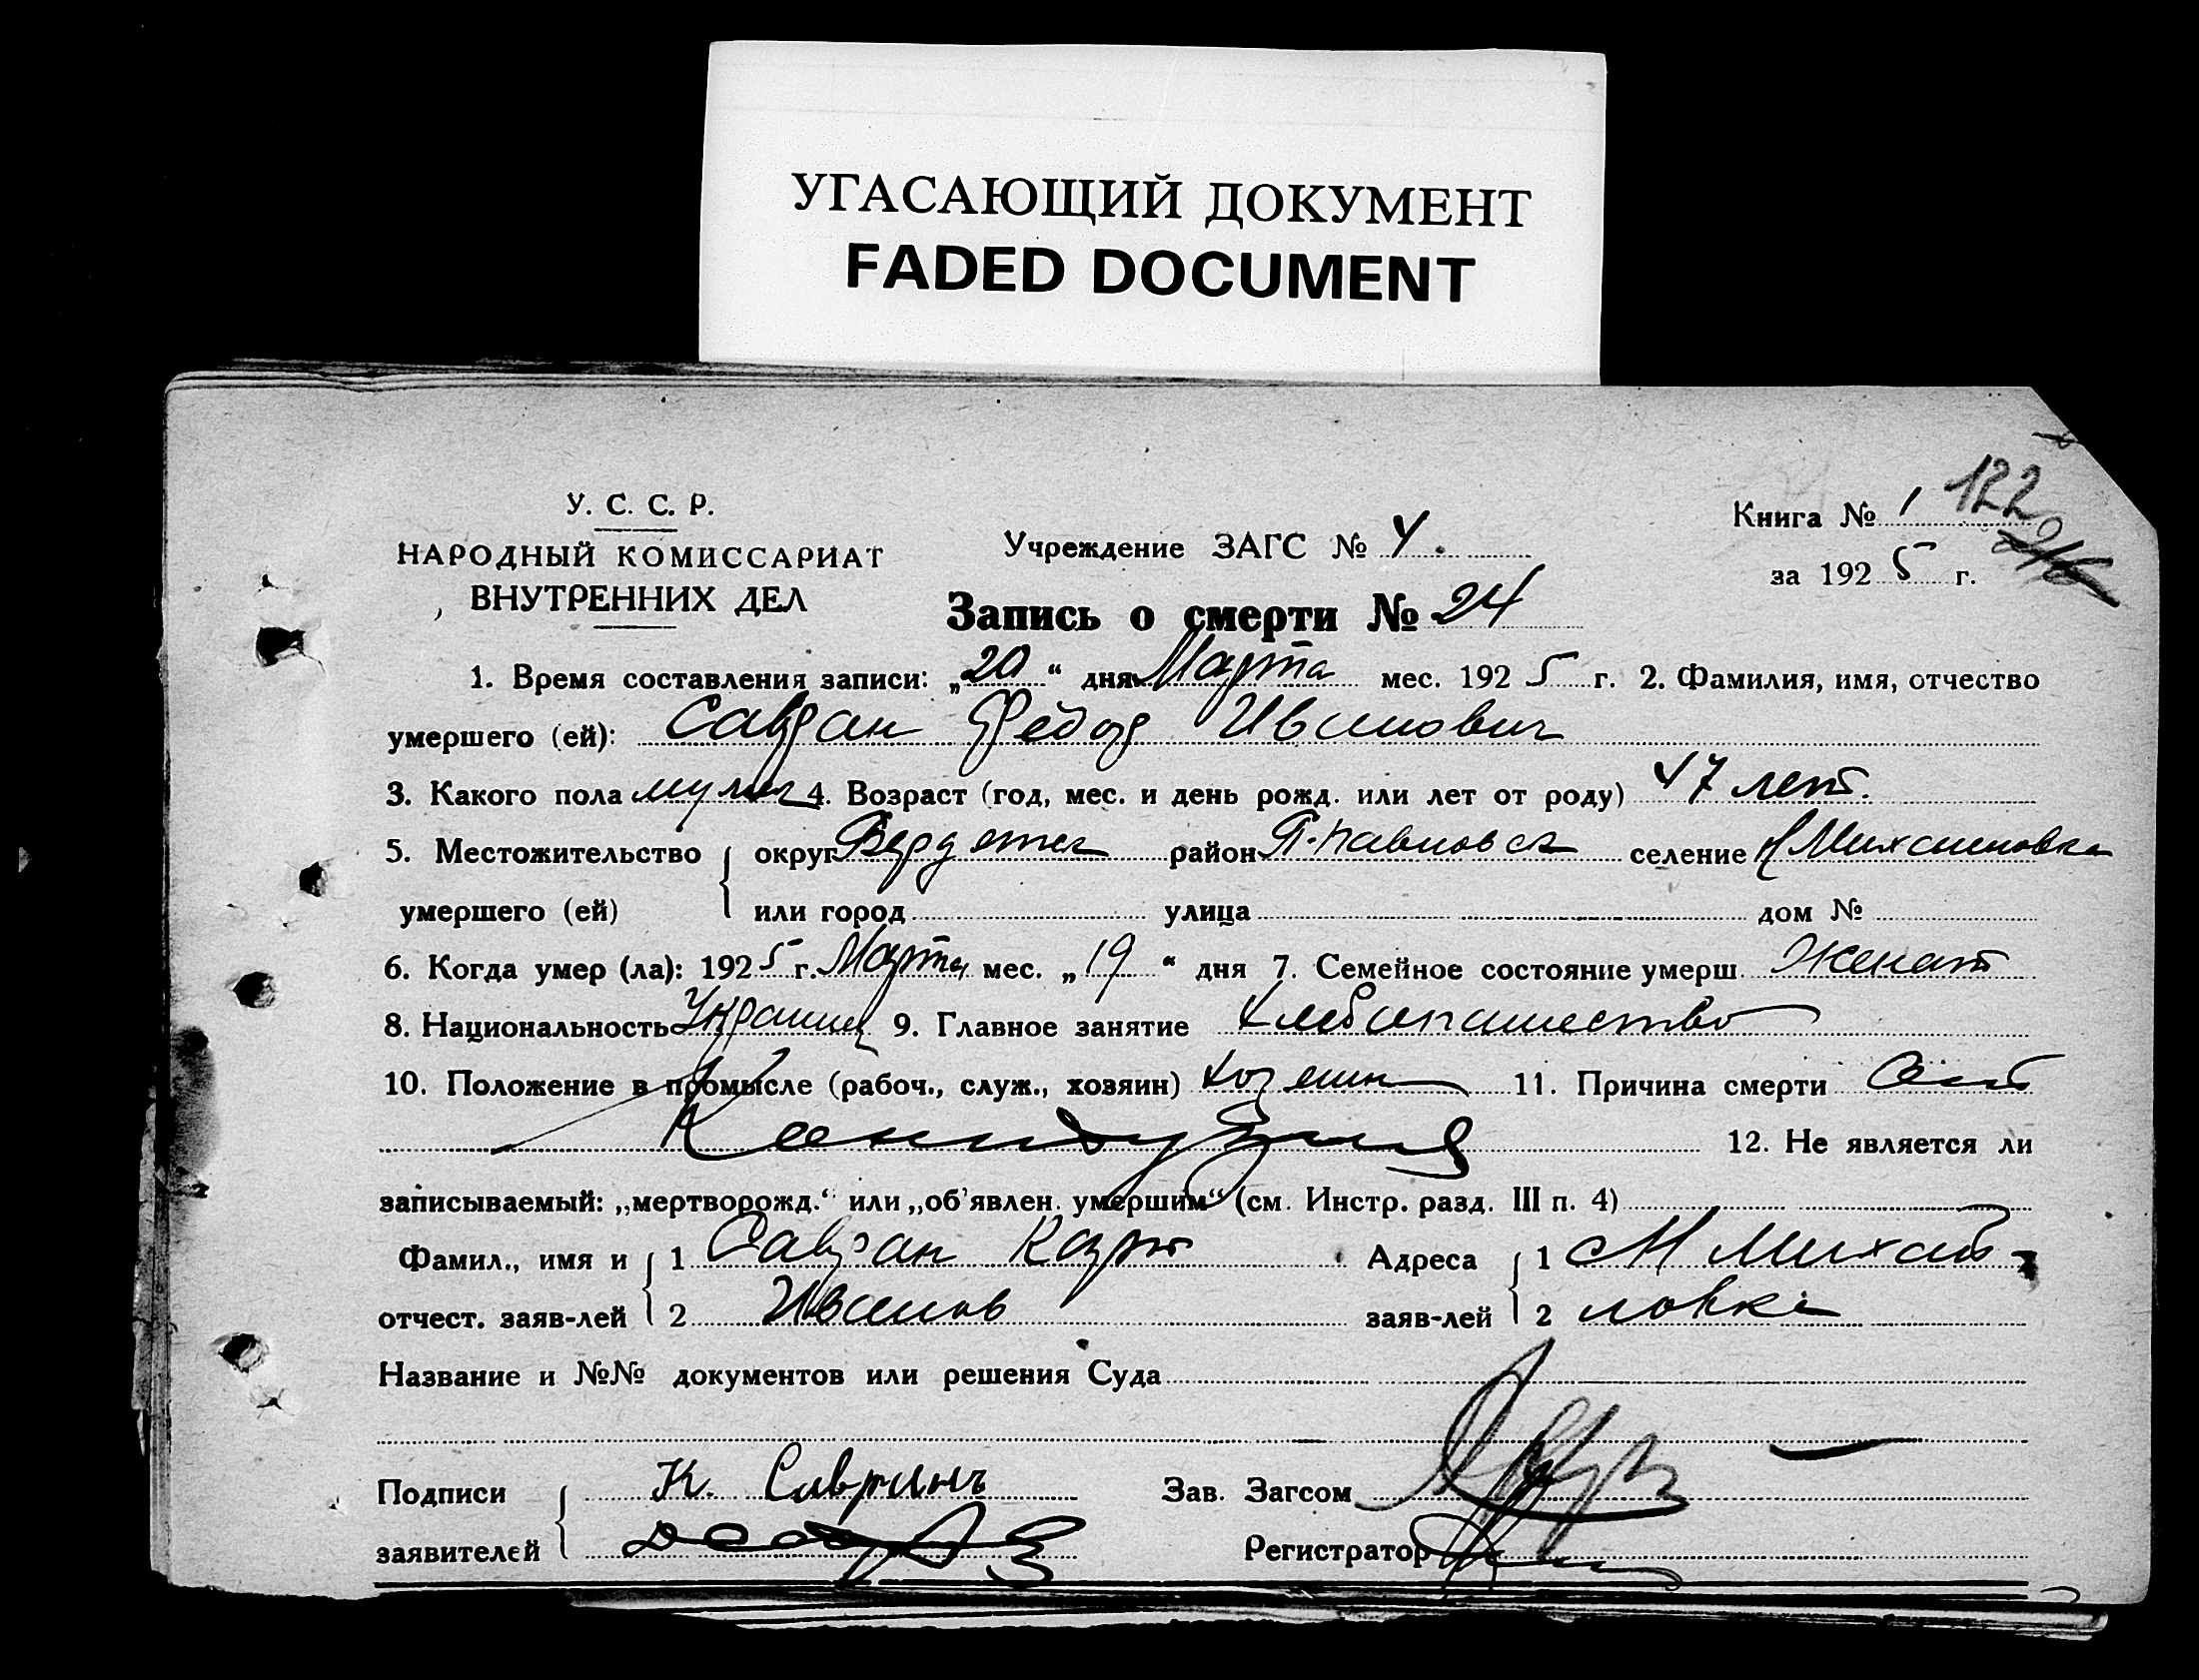 УГАСАЮЩИЙ ДОКУМЕНТ
FADED DOCUMENT
122
У. С. С. Р.
НАРОДНЫЙ КОМИССАРИАТ
ВНУТРЕННИХ ДЕЛ
Учреждение ЗАГС № 4.
Книга № 1
216
за 1925 г.
Запись о смерти № 24
1. Время составления записи: „20“ дня Марта мес. 1925 г. 2. Фамилия, имя, отчество
умершего (ей): Савран Федор Иванович
3. Какого пола 4. Возраст (год, мес. и день рожд. или лет от роду) 47 лет.
5. Местожительство округ район селение Михайловка
умершего (ей) или город улица дом №
6. Когда умер (ла): 1925 г. Марта мес. „19“ дня 7. Семейное состояние умерш. Женат
8. Национальность Украинец 9. Главное занятие Хлебопашество
10. Положение в промысле (рабоч., служ., хозяин) хозяин 11. Причина смерти
12. Не является ли
записываемый: „мертворожд.“ или „об'явлен. умершим“ (см. Инстр. разд. III п. 4)
Фамил., имя и 1 Савран Карп Адреса 1 М Михай
отчест. заяв-лей 2 Иванов заяв-лей 2 ловка
Название и №№ документов или решения Суда
Подписи К. Зав. Загсом
заявителей Регистратор